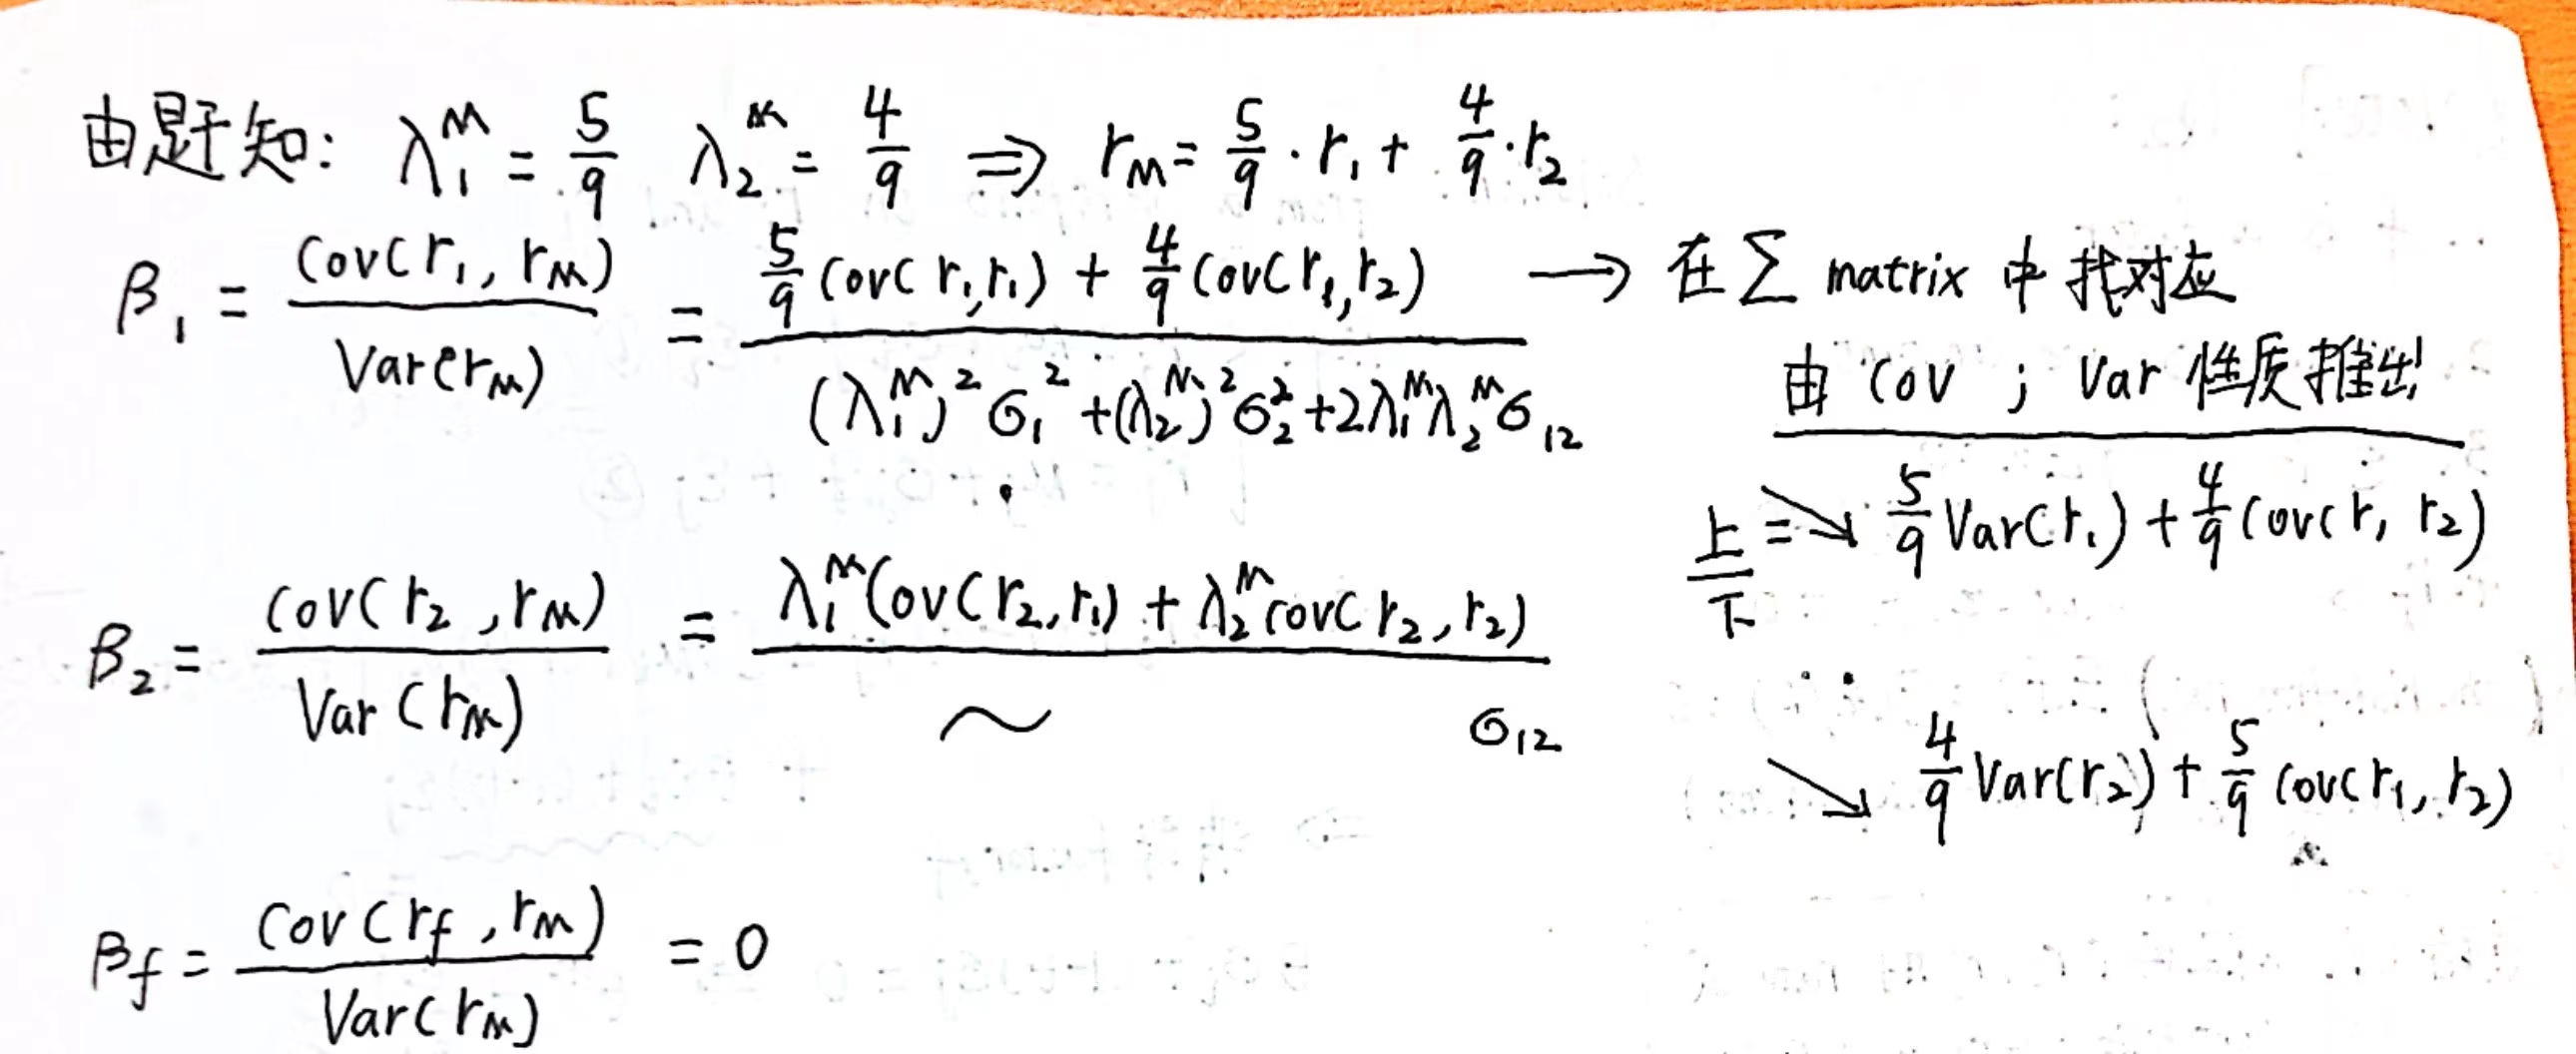 由题知: λ₁ᴹ = 5/9 λ₂ᴹ = 4/9 ⇒ r_M = 5/9 · r₁ + 4/9 · r₂
β₁ = Cov(r₁, r_M) / Var(r_M) = (5/9 Cov(r₁, r₁) + 4/9 Cov(r₁, r₂)) / ((λ₁ᴹ)²σ₁² + (λ₂ᴹ)²σ₂² + 2λ₁ᴹλ₂ᴹσ₁₂) → 在Σ matrix 中找对应
由 Cov ; Var 性质推出
上/下 = ↘ 5/9 Var(r₁) + 4/9 Cov(r₁ r₂)
β₂ = Cov(r₂, r_M) / Var(r_M) = (λ₁ᴹ Cov(r₂, r₁) + λ₂ᴹ Cov(r₂, r₂)) / (~ σ₁₂)
↘ 4/9 Var(r₂) + 5/9 Cov(r₁, r₂)
β_f = Cov(r_f, r_M) / Var(r_M) = 0